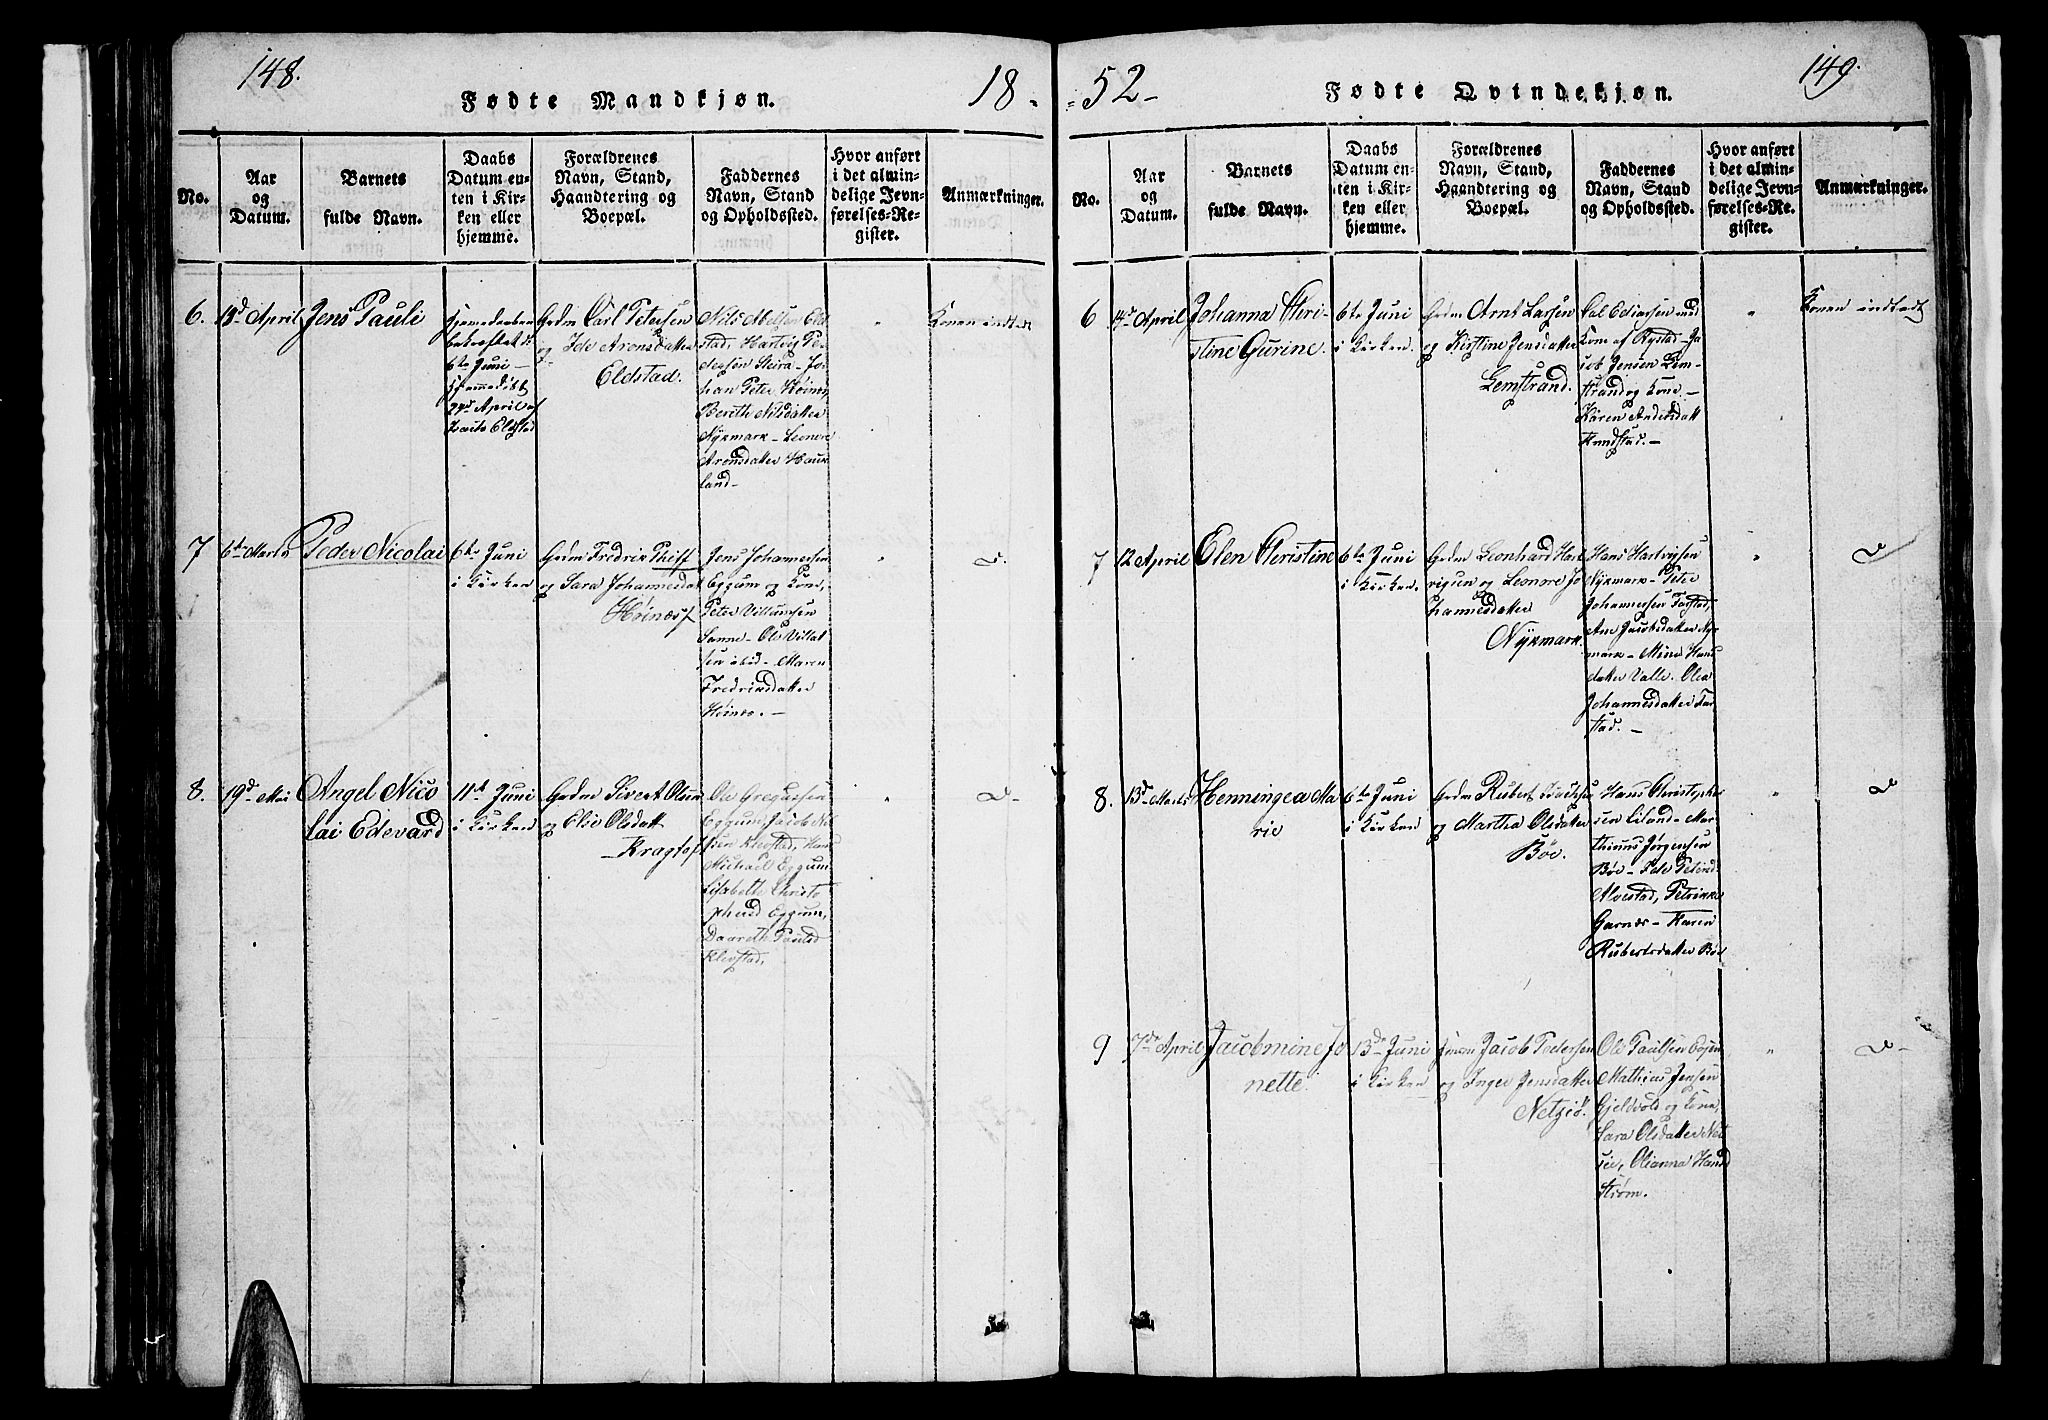 148.
Fødte Mandkjøn.
18 -
No.
Aar
og
Datum.
Barnets
fulde Navn.
Daabs
Datum en-
ten i Kir-
ken eller
hjemme.
Forældrenes
Navn, Stand,
Haandtering og
Boepæl.
Faddernes
Navn, Stand
og Opholdssted.
Hvor anført
i det almin-
delige Jevn-
førelses-Re-
gister.
Anmærkninger.
6.
April
Jens Pauli
hjemmedøaben
bekræftet d.
6te Juni -
hjemmedøbt
April af
Eldstad
Grdm Carl Petersen
og Ide Aronsdatter
Eldstad.
Nils Eld
stad, Hartvig Pe
dersen Steira - Jo
han Peter Høines,
Bereth Nilsdatter
Nykmark - Leonore
Aronsdatter Hauk
land -
"
Konen indledt
7
6te Marts
Peder Nicolai
6te Juni
i Kirken
Grdm Fredrik
og Sara Johannesdat
Høines
Jens Johannessen
Eggum og Kone,
Peter Villumsen
Sanne - Ole
sen ibid - Maren
Fredriksdatter
Høines. -
"
d.
8.
19de Mai
Angel Nico
lai Edevard
11te Juni
i Kirken
Grdm Sivert Olsen
og Else Olsdatt
Kragtof
Ole Gregusen
Eggum, Jacob Nil
sen Klevstad, Hans
Michael Eggum
Lisabeth Christo
phersd Eggum,
Daareth Paulsd
Klevstad,
"
d -
52 -
Fødte Qvindekjøn.
149.
No.
Aar
og
Datum.
Barnets
fulde Navn.
Daabs
Datum en-
ten i Kir-
ken eller
hjemme.
Forældrenes
Navn, Stand,
Haandtering og
Boepæl.
Faddernes
Navn, Stand
og Opholdssted.
Hvor anført
i det almin-
delige Jevn-
førelses-Re-
gister.
Anmærkninger.
6
April
Johanna Chri-
stine Gurine.
6te Juni
i Kirken.
Grdm Arnt Larsen
og Kistine Jensdatter
Lemstrand.
med
Kone af Rystad - Ja
cob Jensen Lem-
strand og Kone -
Karen Andersdatt
Knudstad. -
"
Konen indledt
7
12 April
Elen Christine
6te Juni
i Kirken.
Grdm Leonhard Hart
vigsen og Leonore Jo
hannesdatter
Nykmark.
Hans Hartvigsen
Nykmark - Peter
Johannessen Farstad,
Ane Jacobsdatter Nyk
mark - Mine Hans
datter Valle. Olea
Johannesdatter Far
stad. -
"
d
8.
13de Marts
Henningea Ma
rie
6te Juni
i Kirken
Grdm Rubert
og Martha Olsdatter
Bøe.
Hans Christopher
sen Eiland - Mar
thinus Jørgensen
Bøe - Ide Petersd
Alvestad, Petrikke
Garnæs - Karen
Rubertsdatter Bøe
"
d
9
7de April
Jacobmine Jo
nette.
13de Juni
i Kirken
Jacob Pedersen
og Inger Jensdatter
Netsiø.
Ole Paulsen
Mathias Jensen
Gjeldvold og Kone,
Sara Olsdatter Net
sie, Olianna Hansd
Strøm.
"
d -